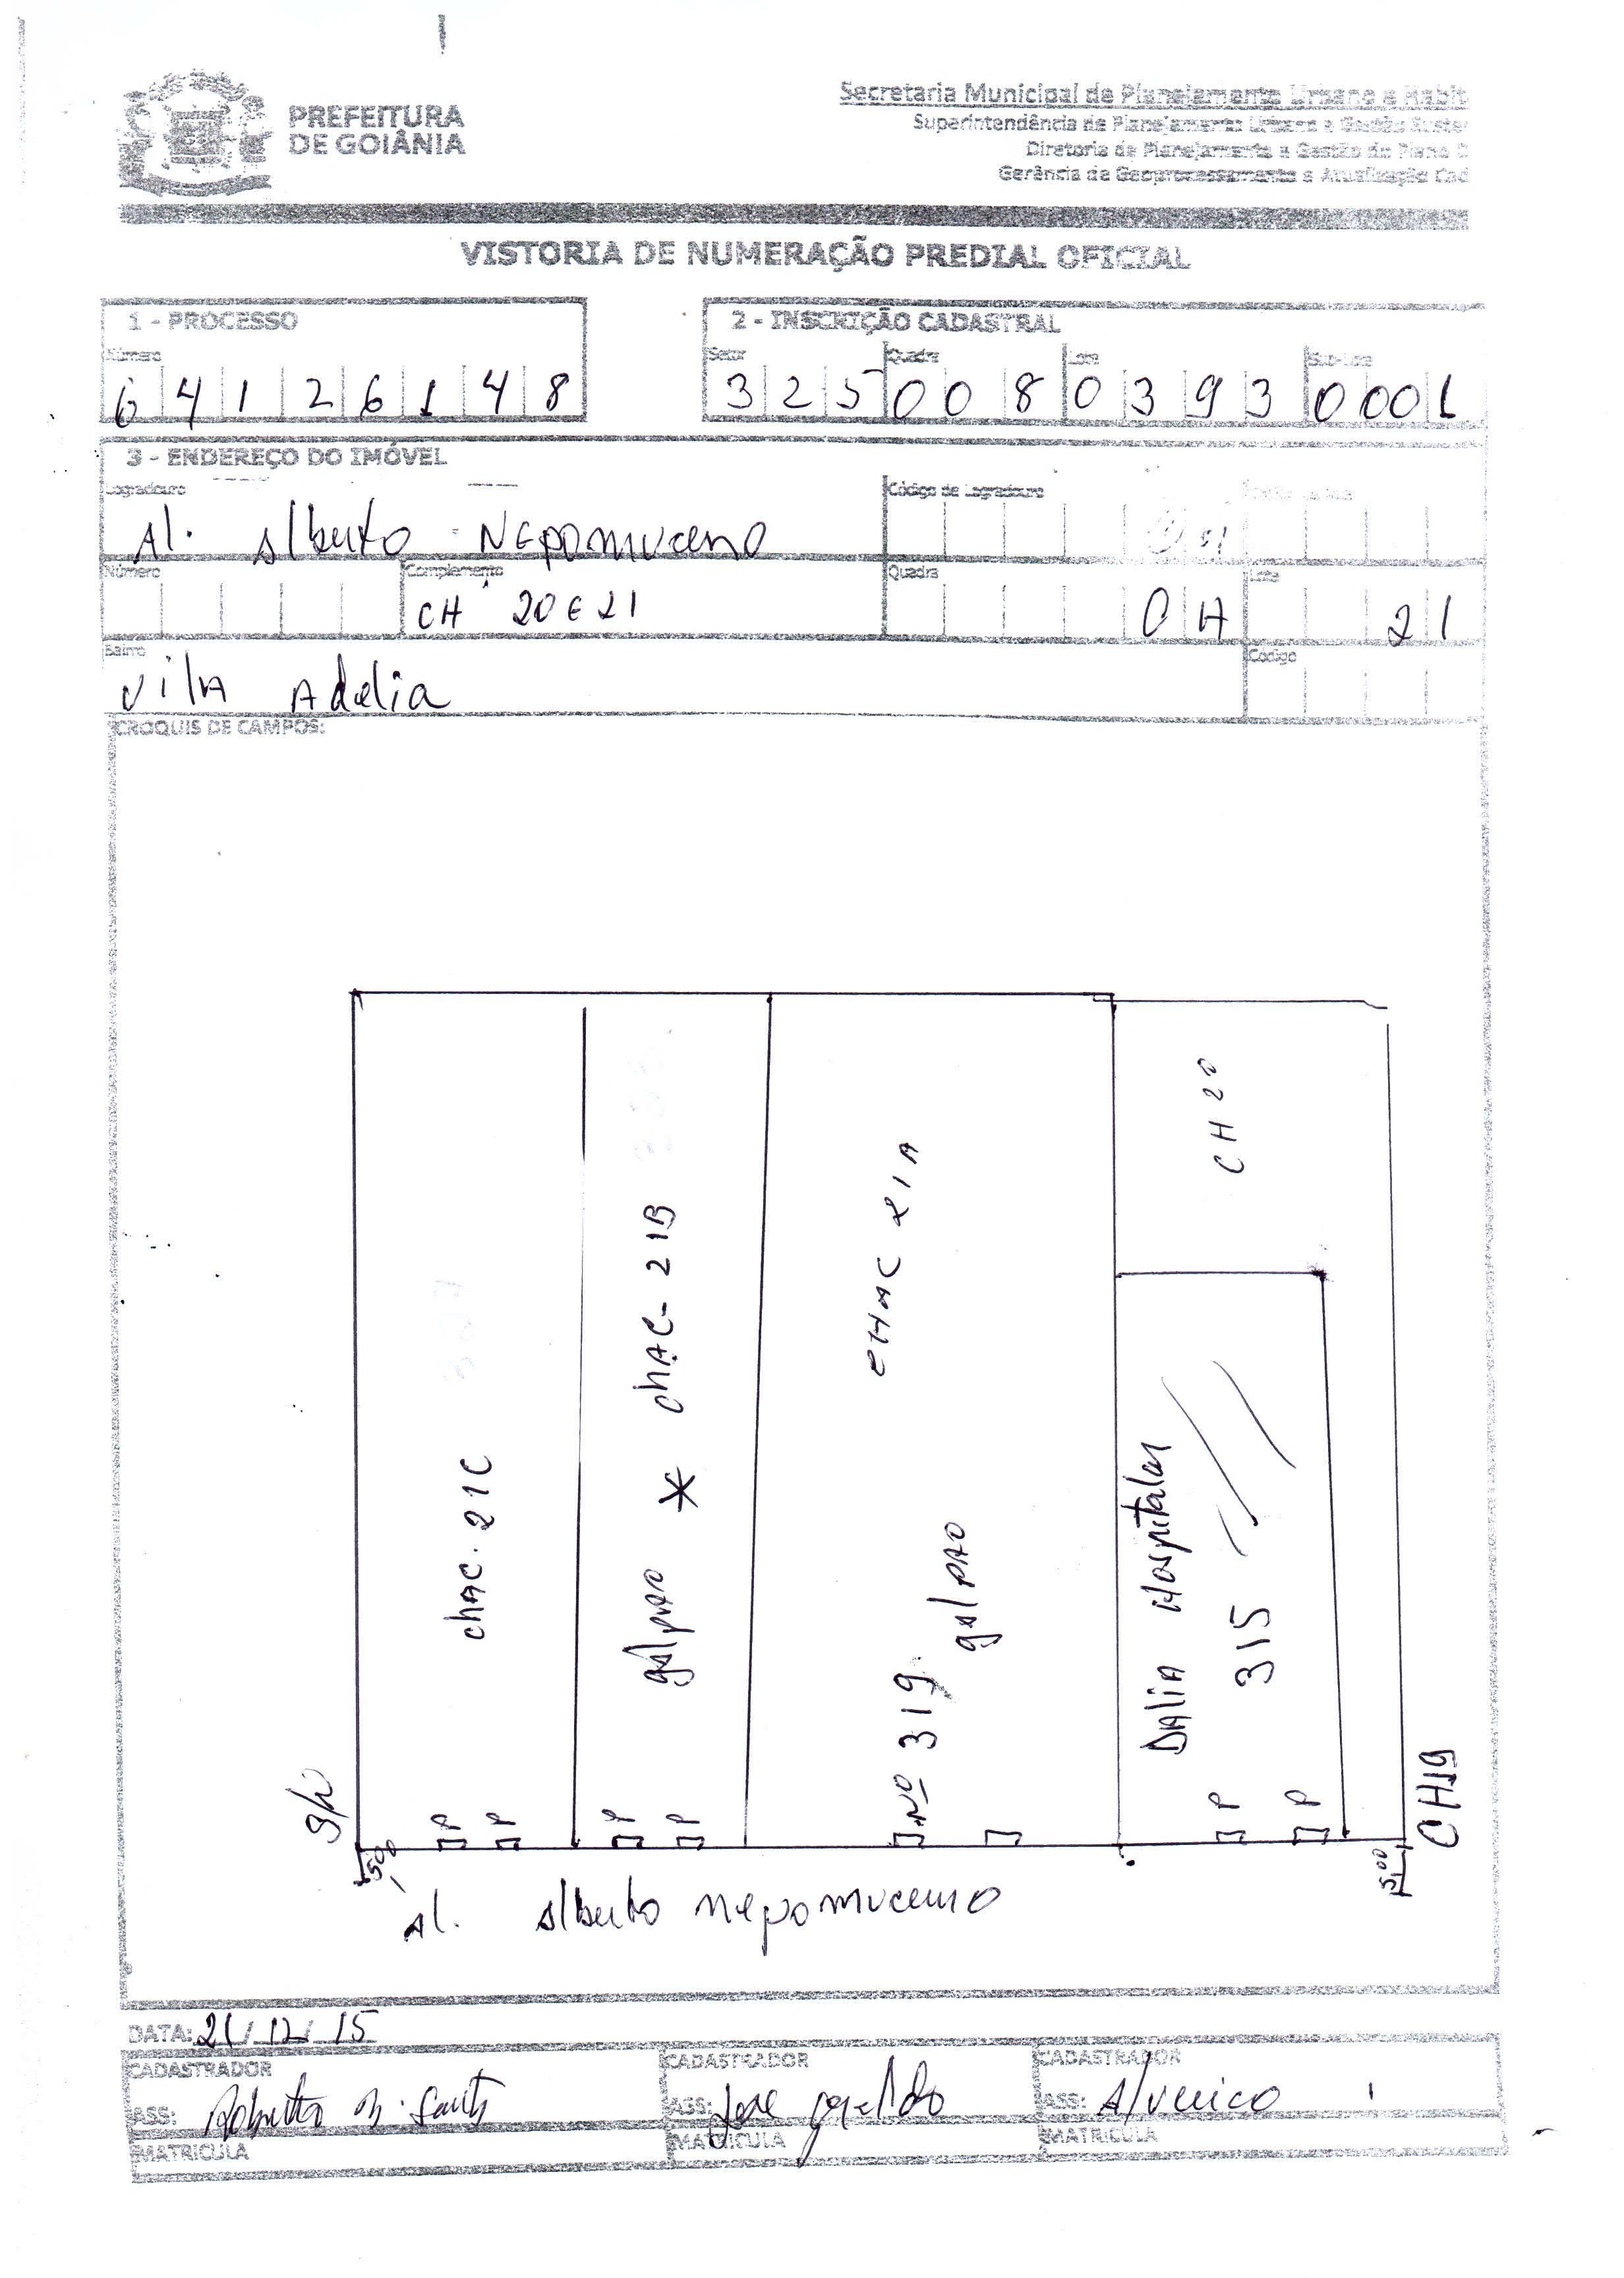 PREFEITURA
DE GOIÂNIA
Secretaria Municipal de Planejamento Urbano e Habit
Superintendência de Planejamento Urbano e Gestão Susten
Diretoria de Planejamento e Gestão do Plano D
Gerência de Geoprocessamento e Atualização Cad
VISTORIA DE NUMERAÇÃO PREDIAL OFICIAL
1 - PROCESSO
Número
6 4 1 2 6 1 4 8
2 - INSCRIÇÃO CADASTRAL
Setor Quadra Lote Sub-Lote
3 2 5 0 0 8 0 3 9 3 0 0 0 1
3 - ENDEREÇO DO IMÓVEL
Logradouro Código de Logradouro
Al. Alberto Nepomuceno
Número Complemento Quadra Lote
CH 20 E 21 CH 21
Bairro Código
Vila Adelia
CROQUIS DE CAMPOS:
chac. 21C
galpao * chAC- 21B
CHAC 21A
Nº 319 galpao
CH 20
Dalia Hospitalar
315
S/N
P P P P P P
5,00
5,00
CH19
Al. Alberto nepomuceno
DATA: 21/12/15
CADASTRADOR CADASTRADOR CADASTRADOR
ASS: Jose geraldo
ASS:
ASS:
MATRICULA MATRICULA MATRICULA